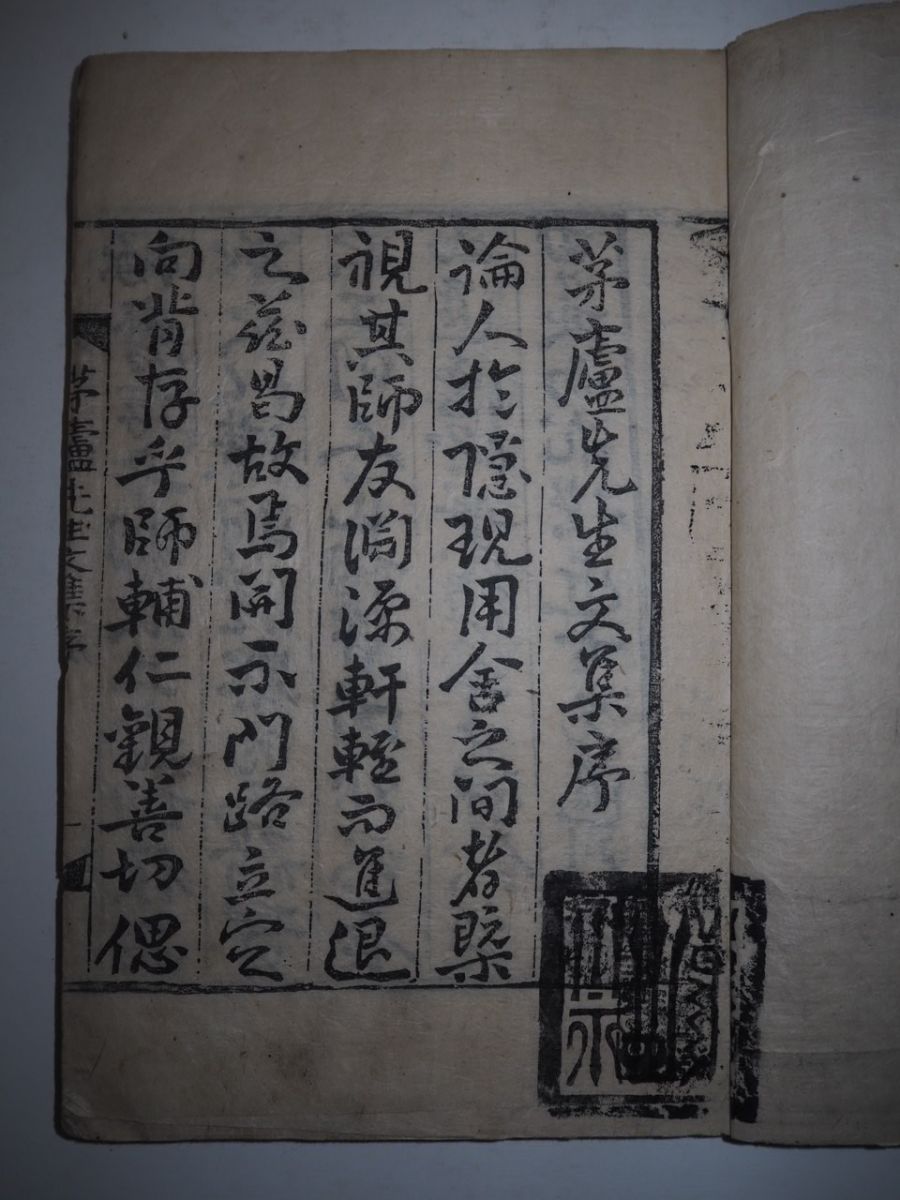 茅廬先生文集序
論人於隱現用舍之間者槩
視其師友淵源軒輊而進退
之玆曷故焉開示門路立定
向背存乎師輔仁觀善切偲
茅廬先生文集序
一